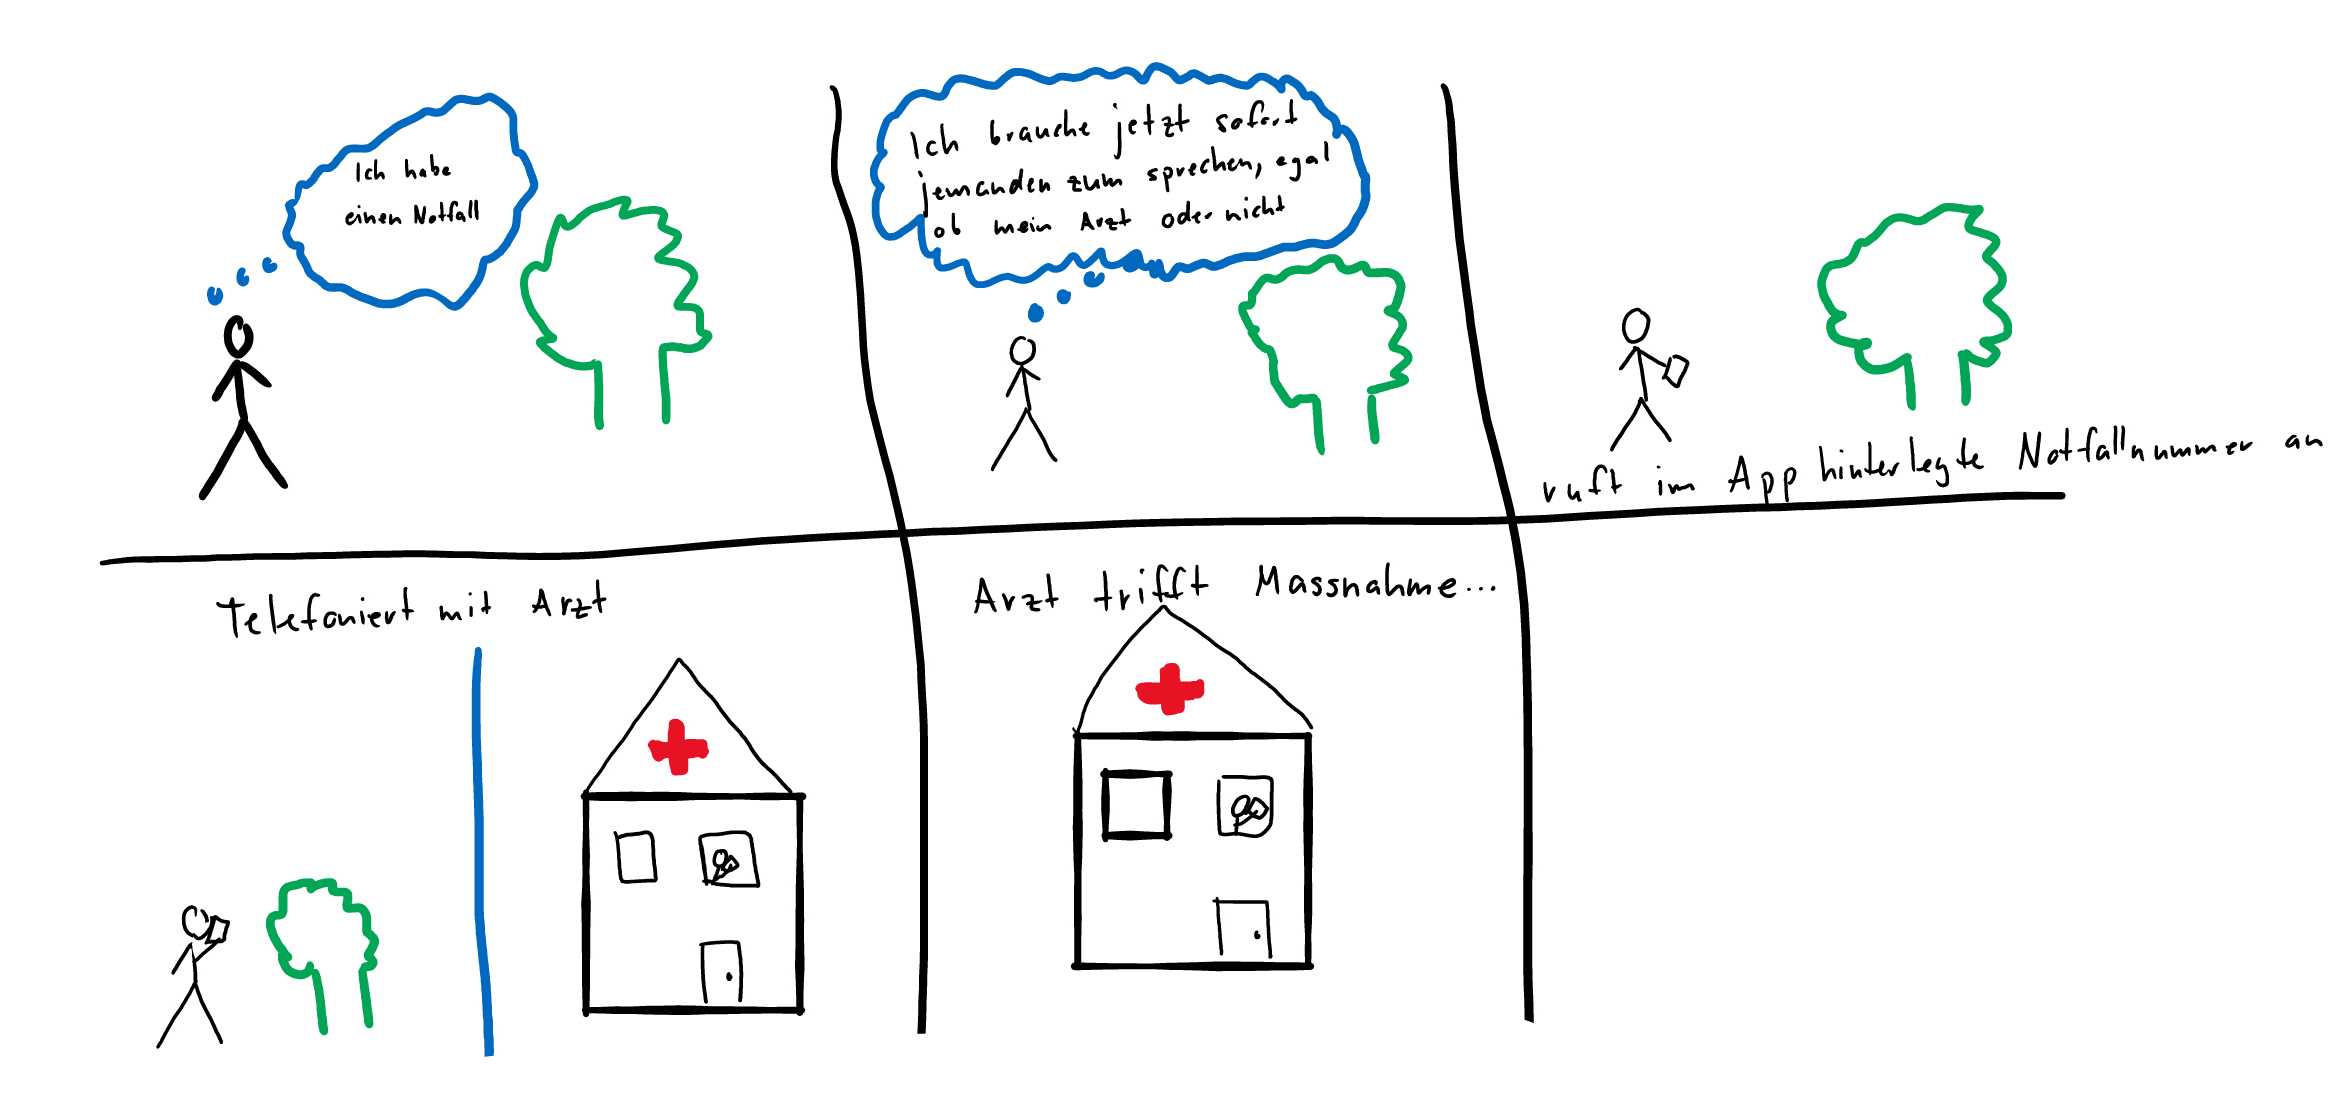 Ich habe
einen Notfall
Ich brauche jetzt sofort
jemanden zum sprechen, egal
ob mein Arzt oder nicht
ruft im App hinterlegte Notfallnummer an
Telefoniert mit Arzt
Arzt trifft Massnahme...